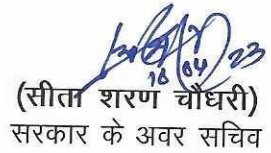 18/04/23
(सीता शरण चौधरी)
सरकार के अवर सचिव